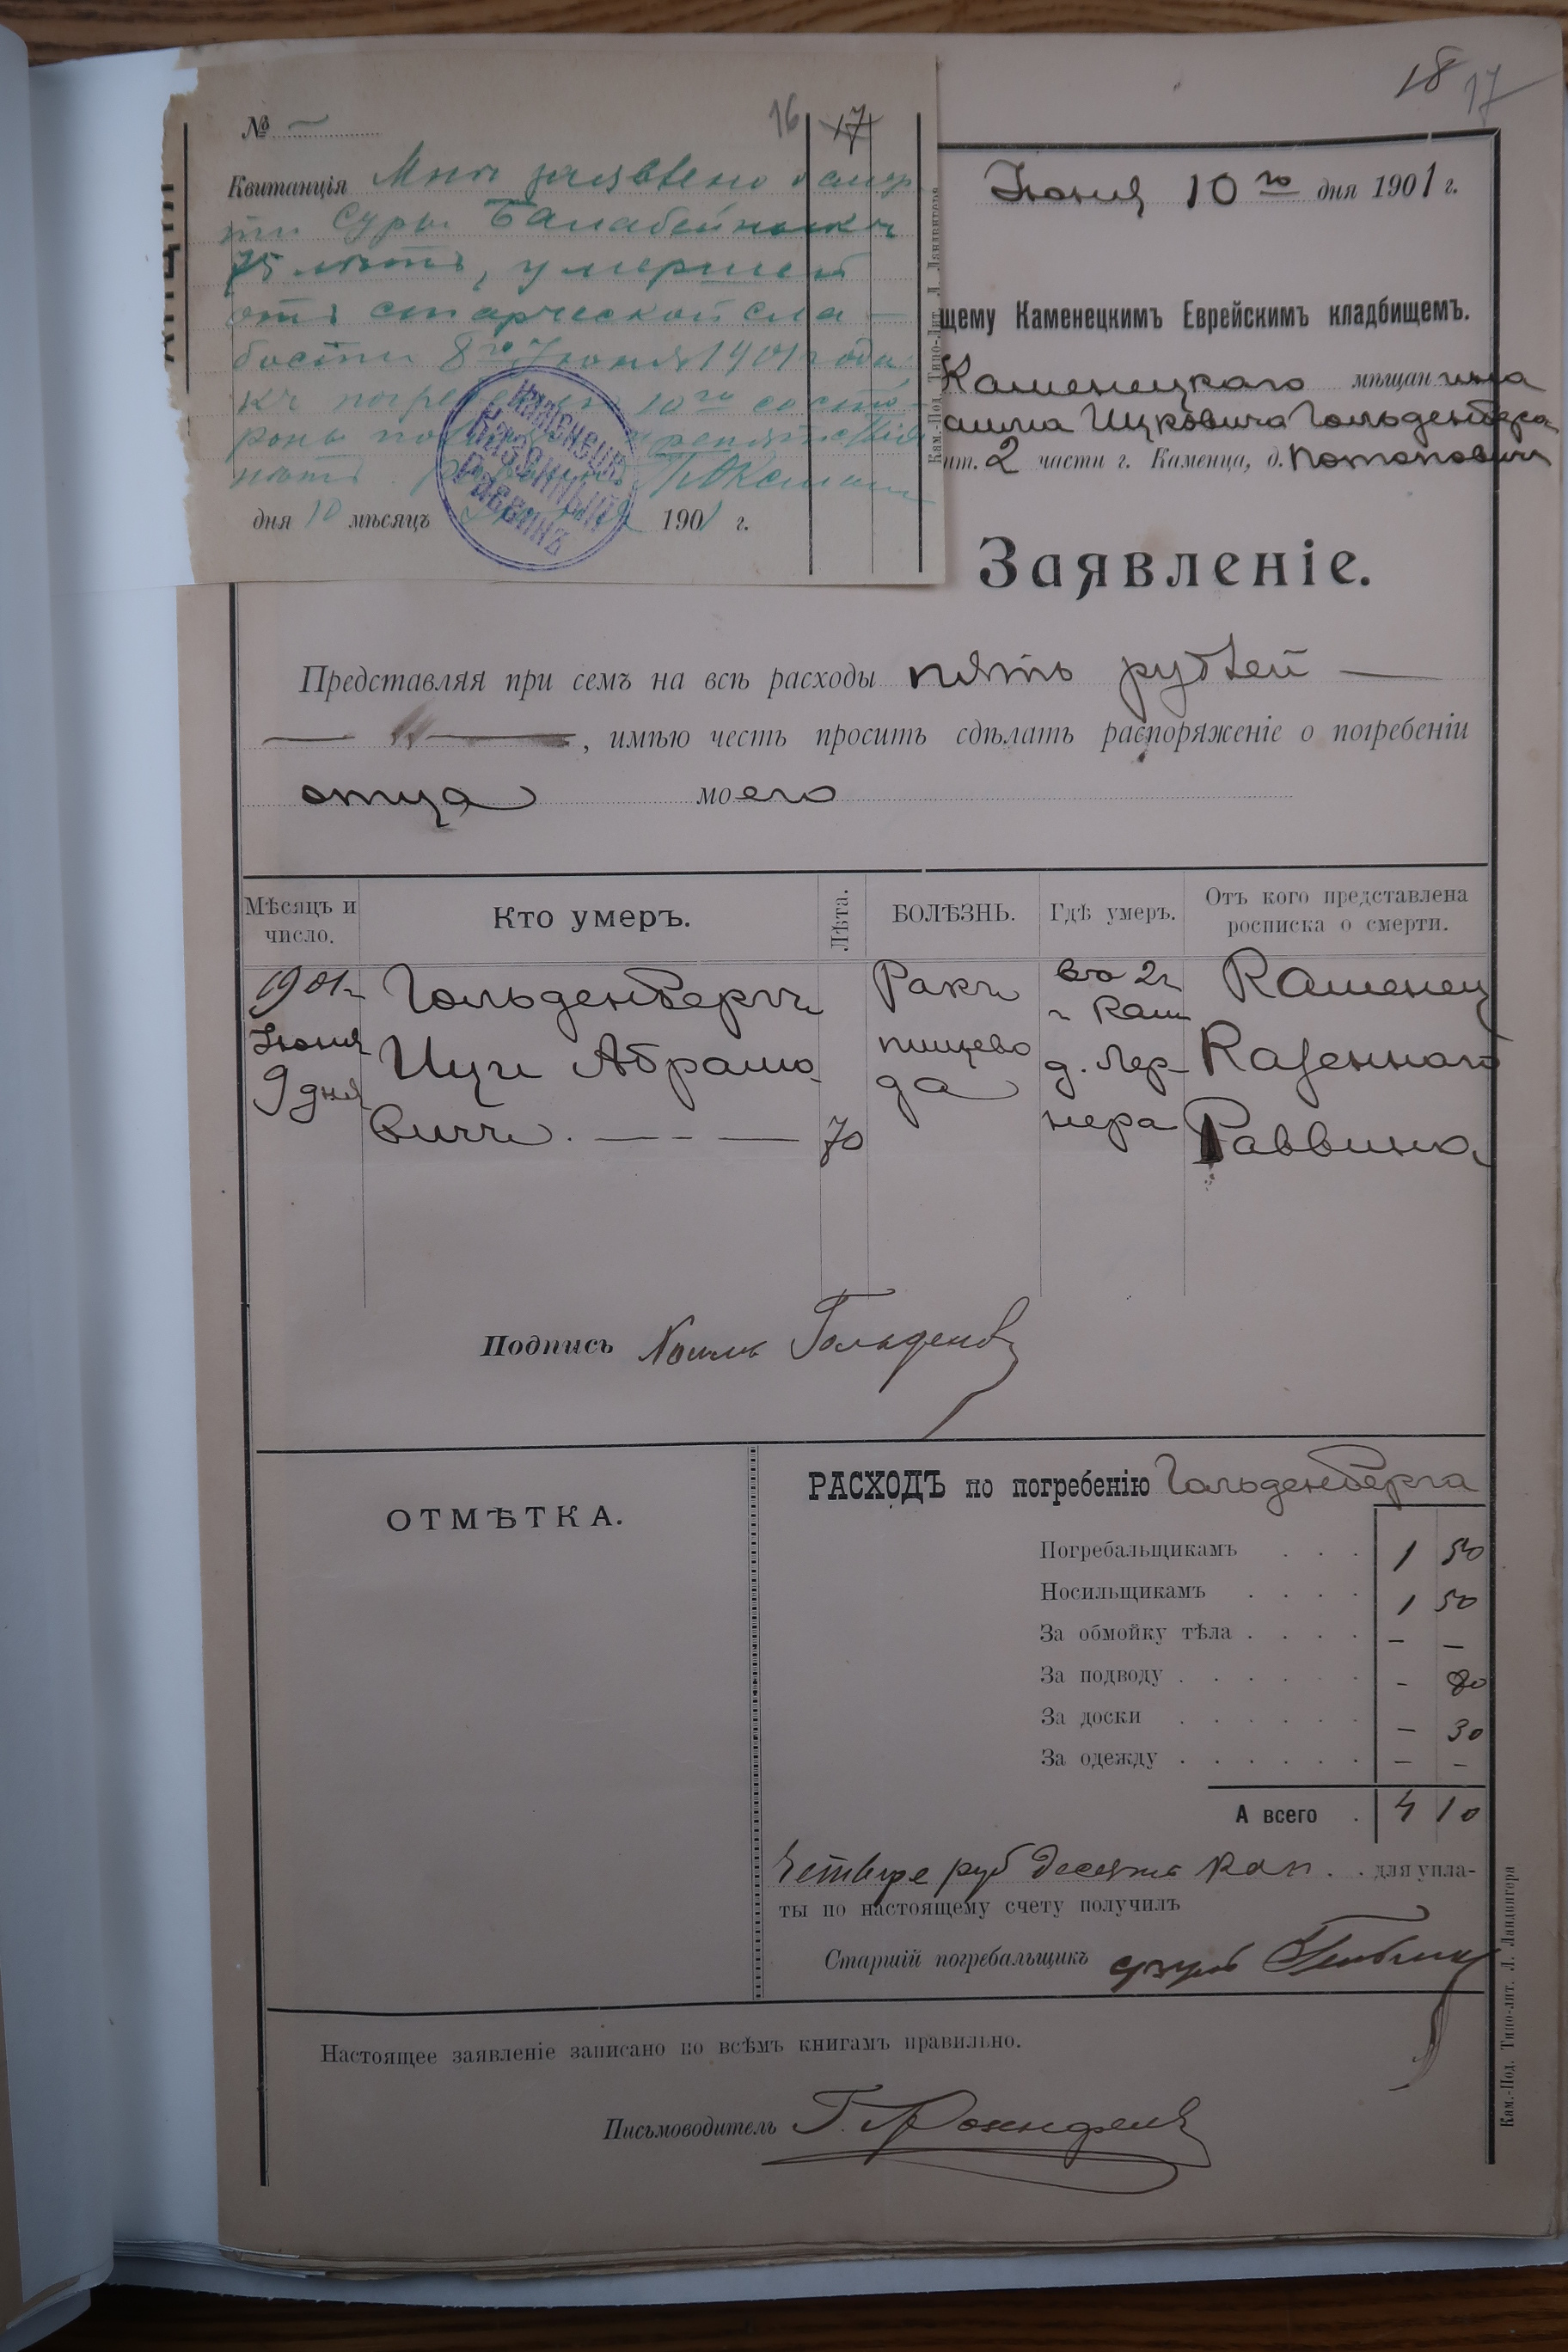 18 17
№ —
16 17
Квитанція Мнѣ заявлено о смер-
ти Суры Балабейносъ
75 лѣтъ, умершей
отъ старческой сла-
бости 8го Іюня 1901 года
къ погребенію 10го со сто-
роны
нѣтъ.
дня 10 мѣсяцъ 1901 г.
Каменецк.
Казенный
Раввинъ
Кам.-Под. Типо-Лит. Л. Ландвигера
Іюня 10го дня 1901 г.
щему Каменецкимъ Еврейскимъ кладбищемъ.
Каменецкаго мѣщанина
Ицковича Гольденберга
ит. 2 части г. Каменца, д. Потоповичъ
Заявленіе.
Представляя при семъ на всѣ расходы пять рублей —
—, имѣю честь просить сдѣлать распоряженіе о погребеніи
отца моего
Мѣсяцъ и число.
Кто умеръ.
Лѣта.
БОЛѢЗНЬ.
Гдѣ умеръ.
Отъ кого представлена росписка о смерти.
1901 г.
Іюня
9 дня
Гольденбергъ
Ицъ Абрамо-
вичъ. — — —
70
Ракъ
пищево
да
во 2 ч
г Кам
д. Лер-
нера
Каменец
Казеннаго
Раввина
Подпись Гольденб
ОТМѢТКА.
РАСХОДЪ по погребенію Гольденберга
Погребальщикамъ . . . 1 50
Носильщикамъ . . . . 1 50
За обмойку тѣла . . . . — —
За подводу . . . . . . - 80
За доски . . . . . . — 30
За одежду . . . . . . — —
А всего . 4 10
Четыре руб десять коп. . для упла-
ты по настоящему счету получилъ
Старшій погребальщикъ
Настоящее заявленіе записано по всѣмъ книгамъ правильно.
Письмоводитель
Кам.-Под. Типо-лит. Л. Ландвигера